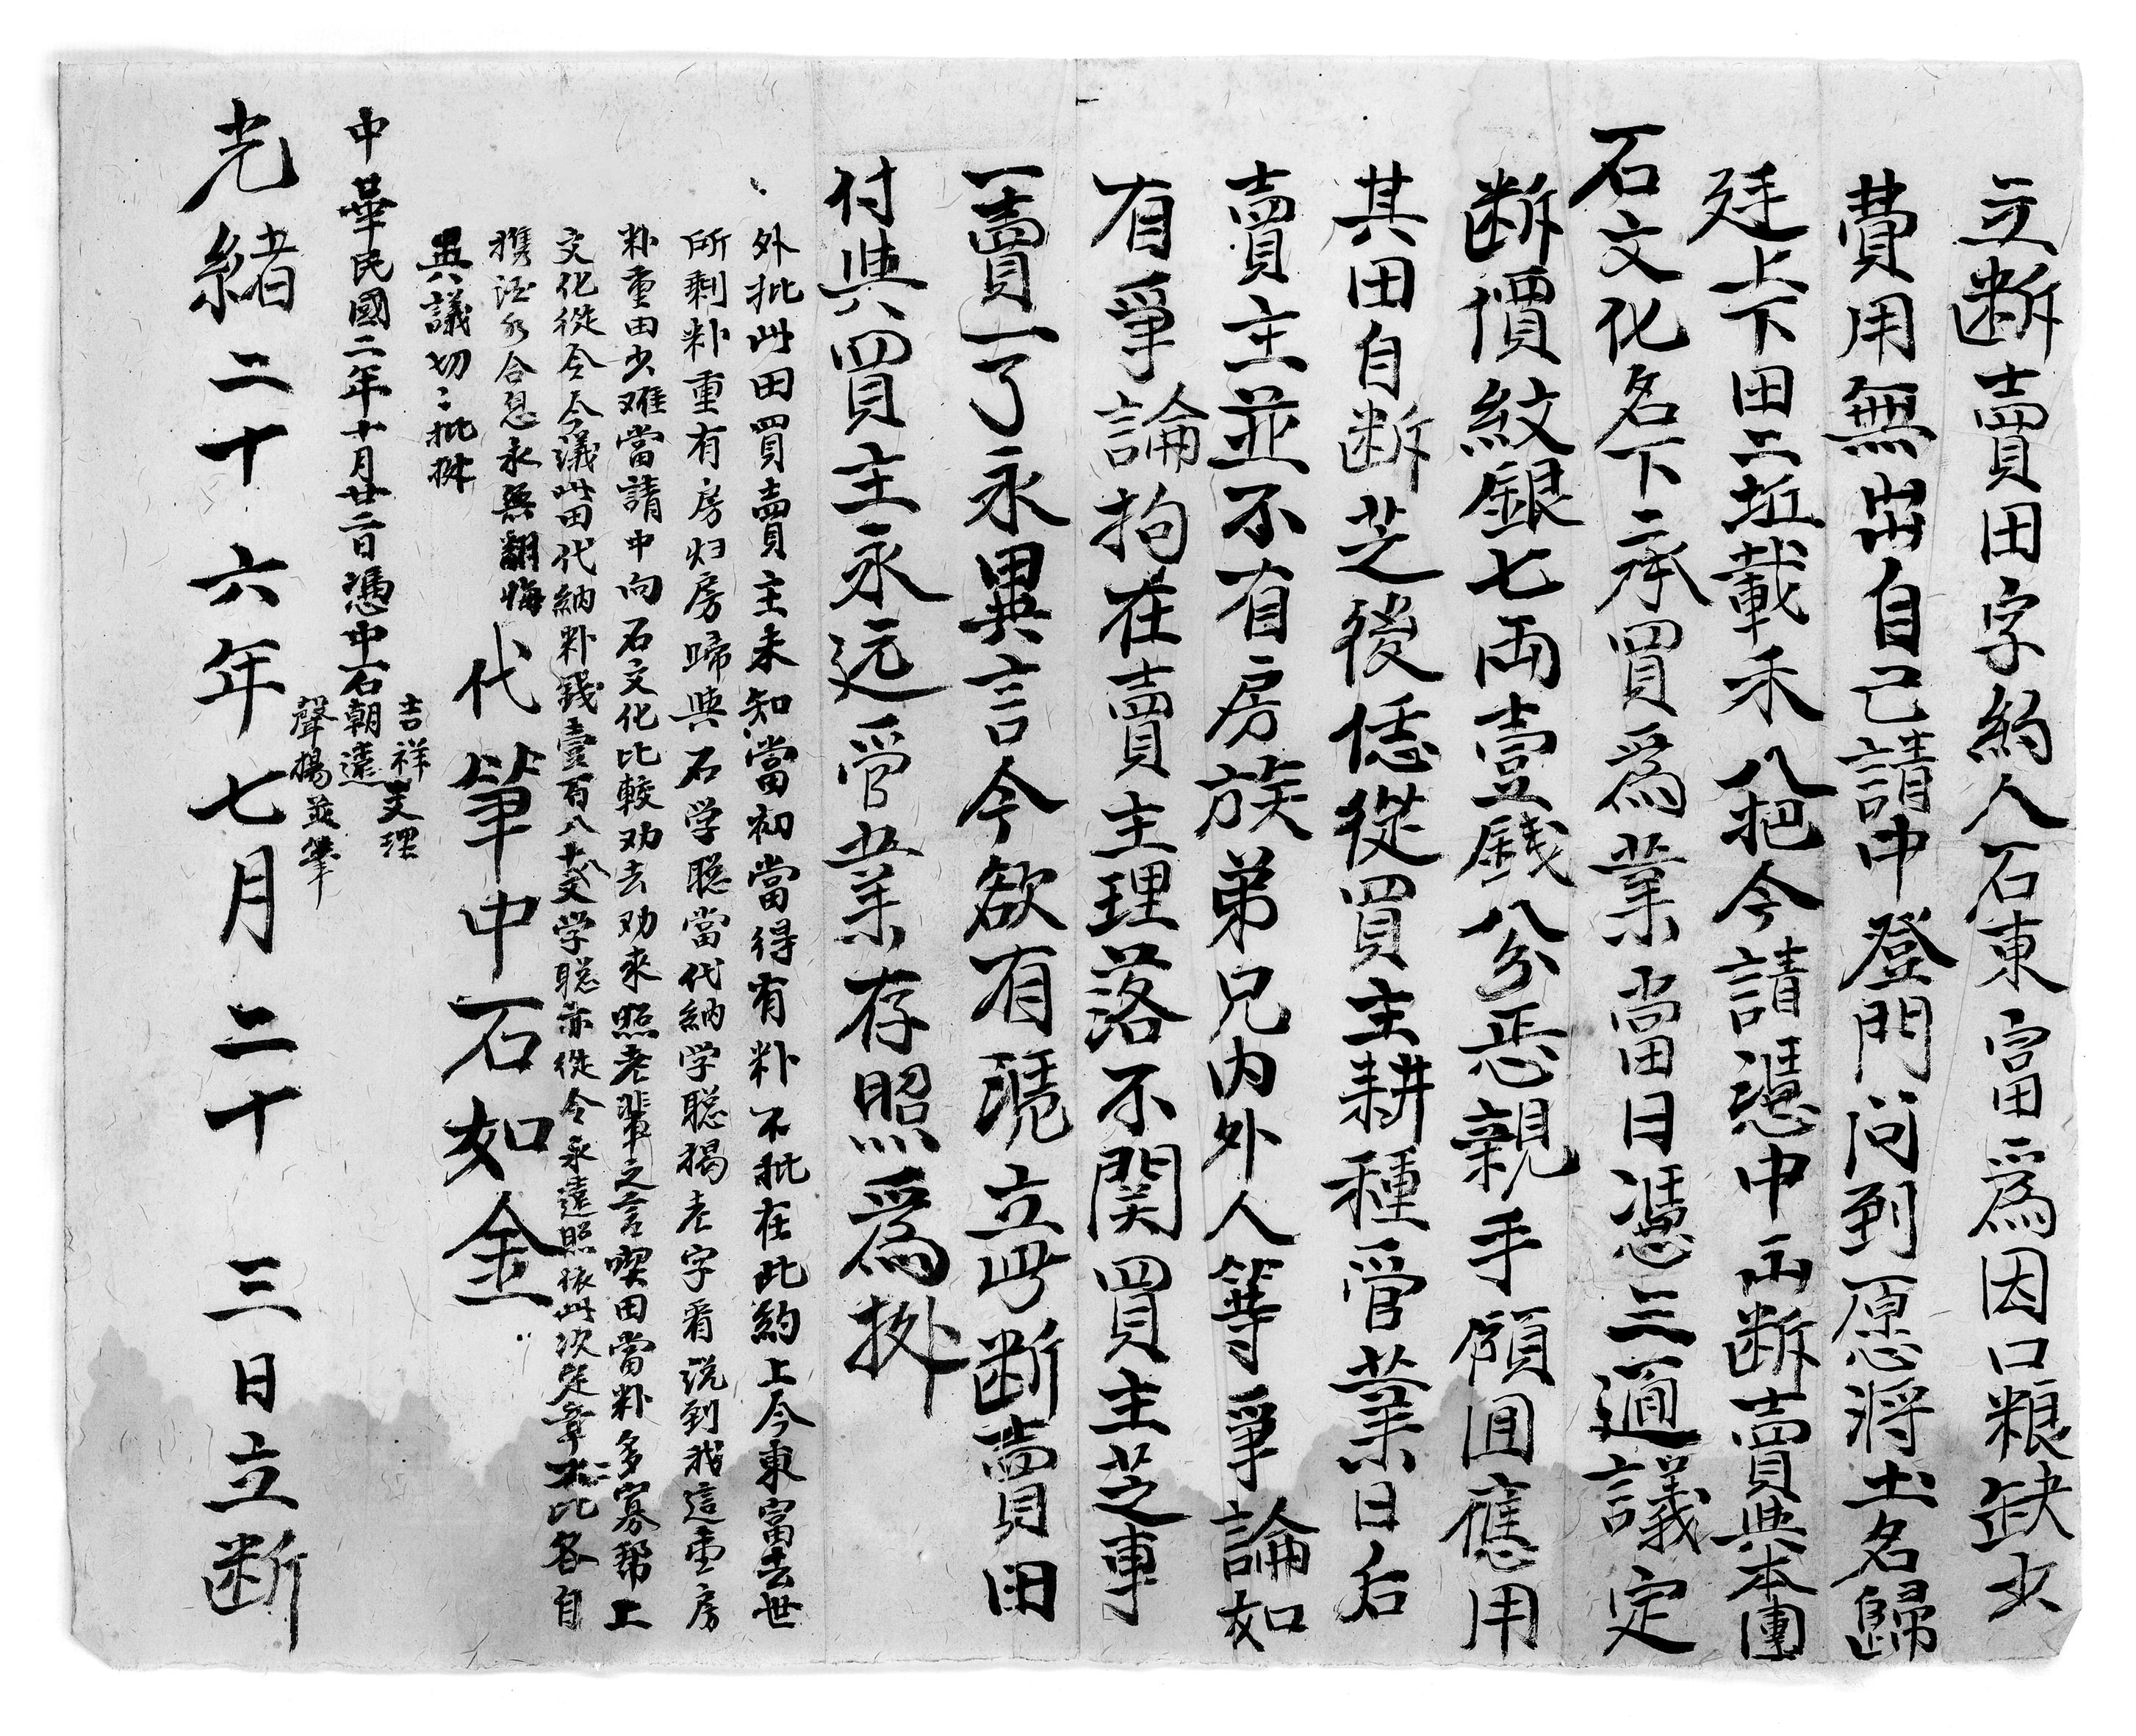 立断賣田字約人石東富爲因口粮缺少
費用無出自己請中登門问到愿將土名歸
廷上下田二坵載禾八把今請憑中出断賣與本團
石文化名下承買爲業當日憑三面議定
断價紋銀七両壹錢八分恶親手領囬應用
其田自断芝後恁從買主耕種管業日后
賣主並不有房族弟兄内外人等爭論如
有爭論拘在賣主理落不関買主芝事
一賣一了永異言今欲有憑立此断賣田
付與買主永远管業存照爲挩
外批此田買賣主未知當初當得有粆不批在此約上今東富去世
所剩粆重有房归房歸與石学聪當代納学聪揭老字看说到我這重房
粆重田少难當請中向石文化比較劝去劝來照老輩之言喫田當粆多寡帮上
文化從今今議此田代納粆錢壹百八十文学聪亦從今永遠照依此次定章 比各自
携 永合息永無翻悔
異議切〻批挩
代筆中石如金
中華民國二年十月廿二日憑中石朝遠
吉祥支理
聲揚並筆
光緒二十六年七月二十三日立断